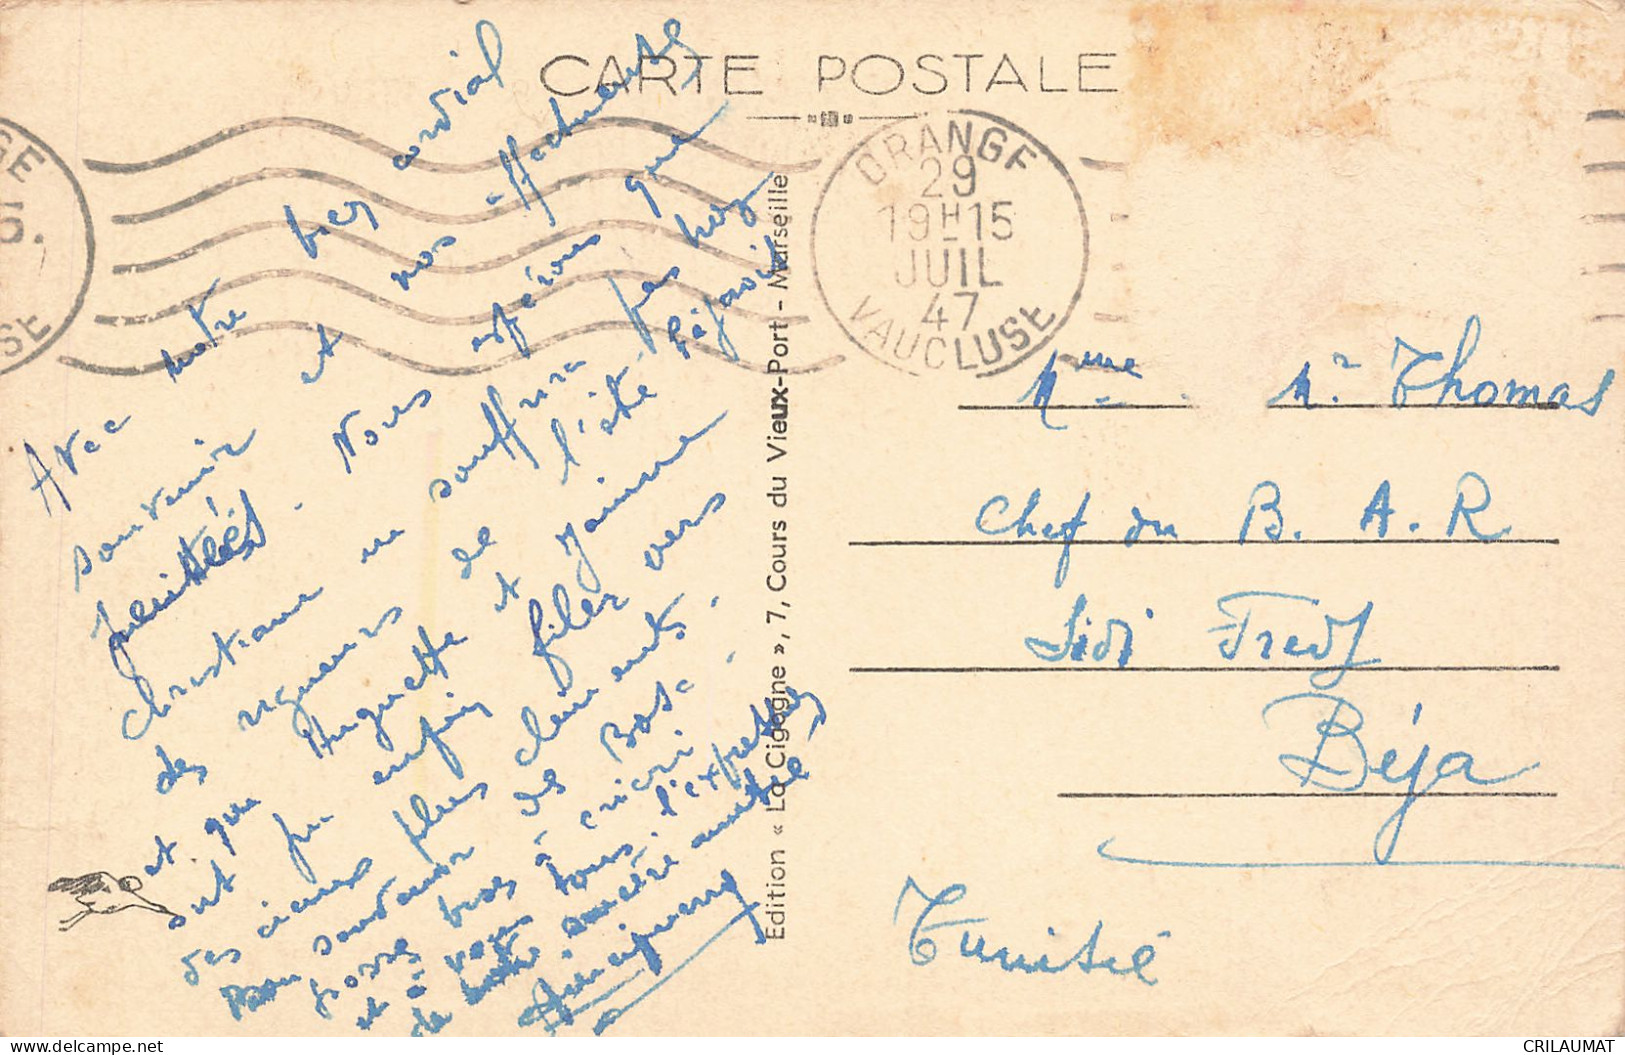 CARTE POSTALE
ORANGE
29
19H15
JUIL
47
VAUCLUSE
Avec notre bien cordial
souvenir et nos affectueuses
pensées. Nous espérons que
Christiane ne souffrira pas trop
des rigueurs de l'été béjaois
et que Huguette et Jeanine
ont pu enfin filer vers
des cieux plus cléments.
Bon souvenir de Bosc.
grosses bises à
et à vous tous, l'expression
de notre sincère amitié
Edition « La Cigogne », 7, Cours du Vieux-Port - Marseille
Mme Mr Thomas
Chef du B. A. R
Sidi Fredj
Béja
Tunisie
delcampe.net
CRILAUMAT